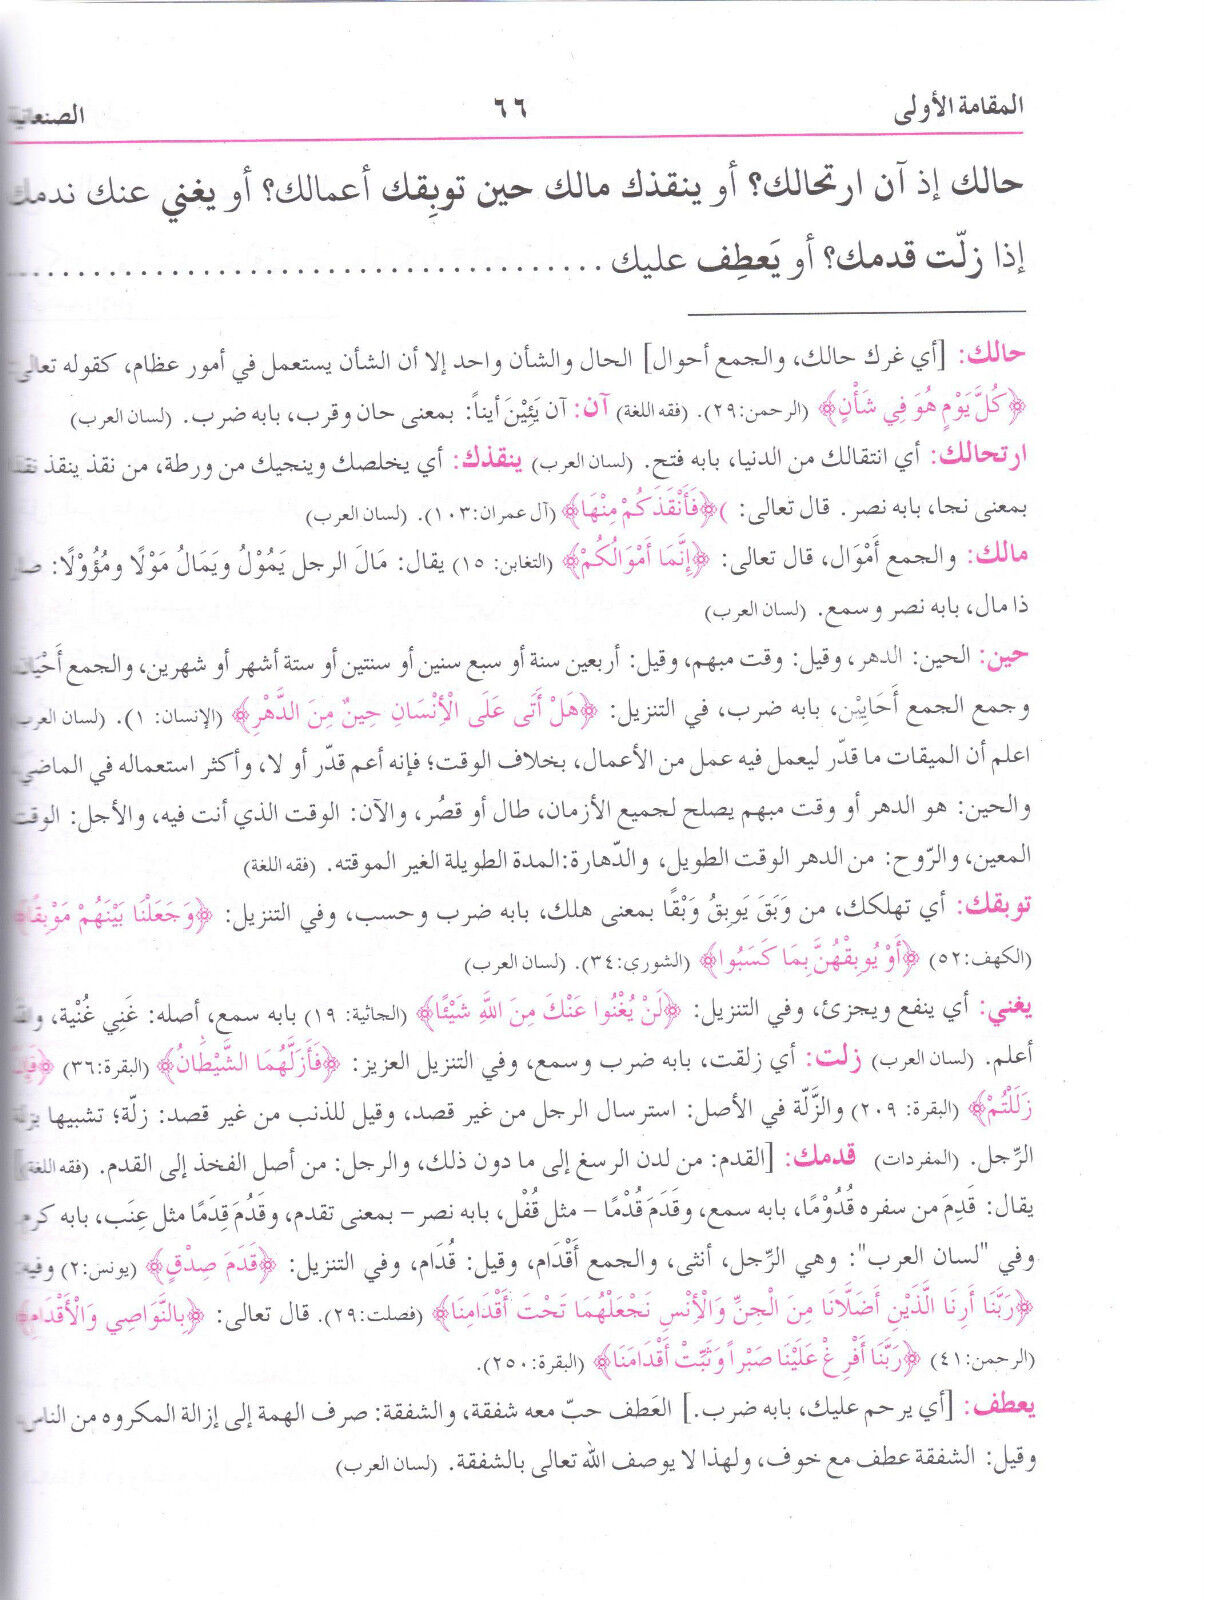 المقامة الأولى ٦٦ الصنعانية
حالك إذ آن ارتحالك؟ أو ينقذك مالك حين توبِقك أعمالك؟ أو يغني عنك ندمك
إذا زلّت قدمك؟ أو يَعطِف عليك ........................................
حالك: [أي غرك حالك، والجمع أحوال] الحال والشأن واحد إلا أن الشأن يستعمل في أمور عظام، كقوله تعالى:
﴿كُلَّ يَوْمٍ هُوَ فِي شَأْنٍ﴾ (الرحمن:٢٩). (فقه اللغة) آن: آن يَئِيْنَ أيناً: بمعنى حان وقرب، بابه ضرب. (لسان العرب)
ارتحالك: أي انتقالك من الدنيا، بابه فتح. (لسان العرب) ينقذك: أي يخلصك وينجيك من ورطة، من نقذ ينقذ نقذا
بمعنى نجا، بابه نصر. قال تعالى: )﴿فَأَنْقَذَكُمْ مِنْهَا﴾ (آل عمران:١٠٣). (لسان العرب)
مالك: والجمع أَمْوَال، قال تعالى: ﴿إِنَّمَا أَمْوَالُكُمْ﴾ (التغابن: ١٥) يقال: مَالَ الرجل يَمُوْلُ ويَمَالُ مَوْلًا ومُؤُوْلًا: صار
ذا مال، بابه نصر وسمع. (لسان العرب)
حين: الحين: الدهر، وقيل: وقت مبهم، وقيل: أربعين سنة أو سبع سنين أو سنتين أو ستة أشهر أو شهرين، والجمع أَحْيَان،
وجمع الجمع أَحَايِيْن، بابه ضرب، في التنزيل: ﴿هَلْ أَتَى عَلَى الْأِنْسَانِ حِينٌ مِنَ الدَّهْرِ﴾ (الإنسان: ١). (لسان العرب)
اعلم أن الميقات ما قدّر ليعمل فيه عمل من الأعمال، بخلاف الوقت؛ فإنه أعم قدّر أو لا، وأكثر استعماله في الماضي.
والحين: هو الدهر أو وقت مبهم يصلح لجميع الأزمان، طال أو قصُر، والآن: الوقت الذي أنت فيه، والأجل: الوقت
المعين، والرّوح: من الدهر الوقت الطويل، والدّهارة:المدة الطويلة الغير الموقته. (فقه اللغة)
توبقك: أي تهلكك، من وَبَقَ يَوبِقُ وَبْقًا بمعنى هلك، بابه ضرب وحسب، وفي التنزيل: ﴿وَجَعَلْنَا بَيْنَهُمْ مَوْبِقًا﴾
(الكهف:٥٢) ﴿أَوْ يُوبِقْهُنَّ بِمَا كَسَبُوا﴾ (الشورى:٣٤). (لسان العرب)
يغني: أي ينفع ويجزئ، وفي التنزيل: ﴿لَنْ يُغْنُوا عَنْكَ مِنَ اللَّهِ شَيْئًا﴾ (الجاثية: ١٩) بابه سمع، أصله: غَنِي غُنْية، والله
أعلم. (لسان العرب) زلت: أي زلقت، بابه ضرب وسمع، وفي التنزيل العزيز: ﴿فَأَزَلَّهُمَا الشَّيْطَانُ﴾ (البقرة:٣٦) ﴿فَإِنْ
زَلَلْتُمْ﴾ (البقرة: ٢٠٩) والزَّلّة في الأصل: استرسال الرجل من غير قصد، وقيل للذنب من غير قصد: زلّة؛ تشبيها بزلة
الرِّجل. (المفردات) قدمك: [القدم: من لدن الرسغ إلى ما دون ذلك، والرجل: من أصل الفخذ إلى القدم. (فقه اللغة)]
يقال: قَدِمَ من سفره قُدُوْمًا، بابه سمع، وقَدَمَ قُدْمًا – مثل قُفْل، بابه نصر – بمعنى تقدم، وقَدُمَ قِدَمًا مثل عِنَب، بابه كرم.
وفي "لسان العرب": وهي الرِّجل، أنثى، والجمع أَقْدَام، وقيل: قُدَام، وفي التنزيل: ﴿قَدَمَ صِدْقٍ﴾ (يونس:٢) وفيه:
﴿رَبَّنَا أَرِنَا الَّذَيْنِ أَضَلَّانَا مِنَ الْجِنِّ وَالْأِنْسِ نَجْعَلْهُمَا تَحْتَ أَقْدَامِنَا﴾ (فصلت:٢٩). قال تعالى: ﴿بِالنَّوَاصِي وَالْأَقْدَامِ﴾
(الرحمن:٤١) ﴿رَبَّنَا أَفْرِغْ عَلَيْنَا صَبْراً وَثَبِّتْ أَقْدَامَنَا﴾ (البقرة:٢٥٠).
يعطف: [أي يرحم عليك، بابه ضرب.] العَطف حبّ معه شفقة، والشفقة: صرف الهمة إلى إزالة المكروه من الناس.
وقيل: الشفقة عطف مع خوف، ولهذا لا يوصف الله تعالى بالشفقة. (لسان العرب)